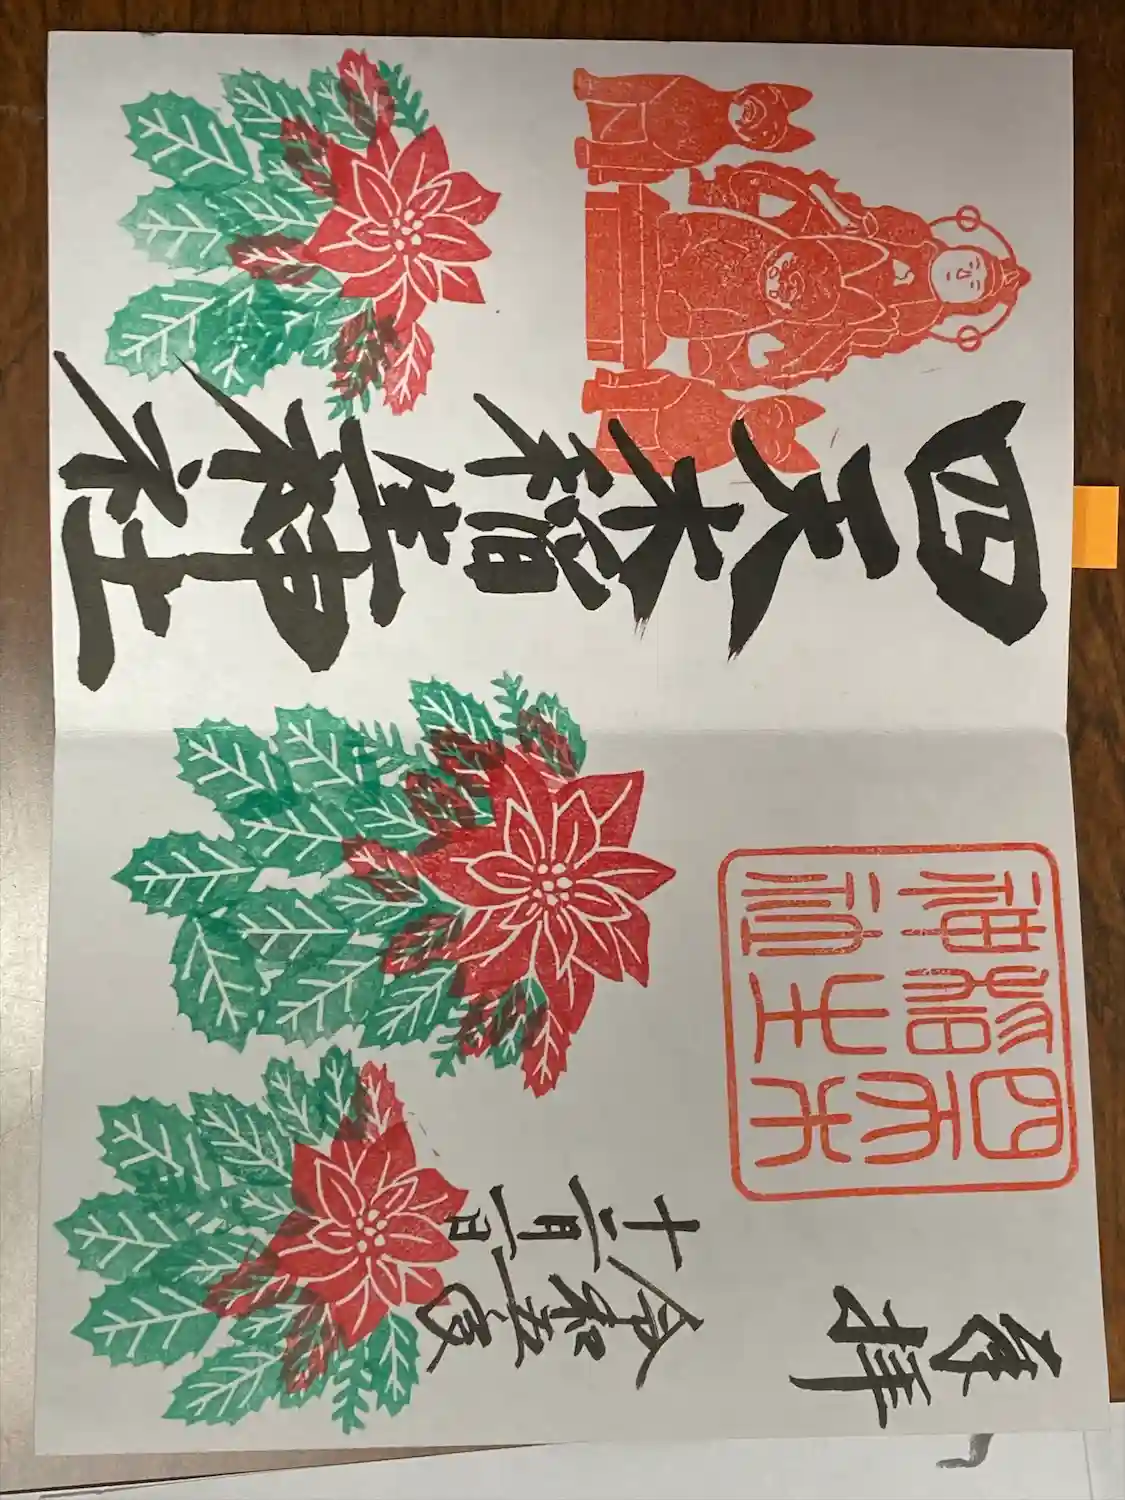 奉拝
四天木
稲生
神社
四天木稲生神社
令和五年
十二月一日